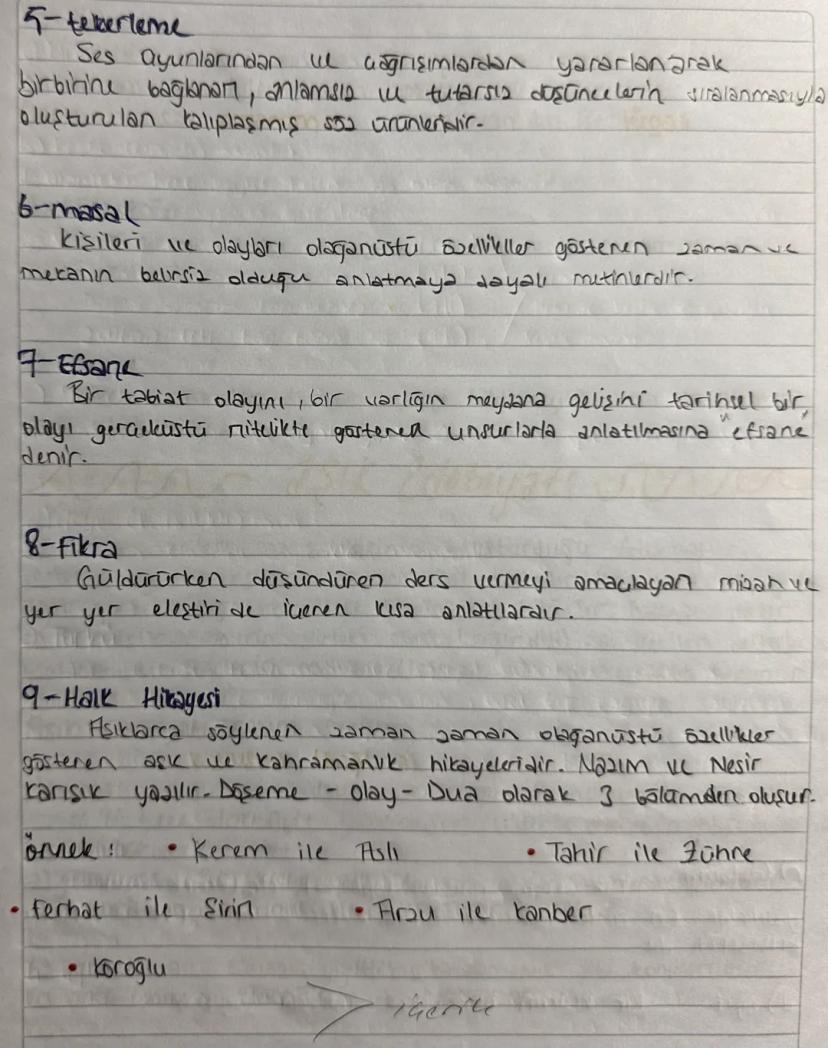 5-tekerleme
Ses oyunlarından ve çağrışımlardan yararlanarak
birbirine bağlanan, anlamsız ve tutarsız düşüncelerin sıralanmasıyla
oluşturulan kalıplaşmış söz ürünleridir.
6-masal
Kişileri ve olayları olağanüstü özellikler gösteren zaman ve
mekanın belirsiz olduğu anlatmaya dayalı metinlerdir.
7-Efsane
Bir tabiat olayını, bir varlığın meydana gelişini tarihsel bir
olayı gerçeküstü nitelikte gösteren unsurlarla anlatılmasına "efsane"
denir.
8-fıkra
Güldürürken düşündüren ders vermeyi amaçlayan mizah ve
yer yer eleştiri de içeren kısa anlatılardır.
9-Halk Hikayesi
Aşıklarca söylenen zaman zaman olağanüstü özellikler
gösteren aşk ve kahramanlık hikayeleridir. Nazım ve Nesir
karışık yazılır. Döşeme - olay - Dua olarak 3 bölümden oluşur.
örnek: • Kerem ile Aslı • Tahir ile Zühre
• ferhat ile Şirin • Arzu ile kanber
• Köroğlu
içerik